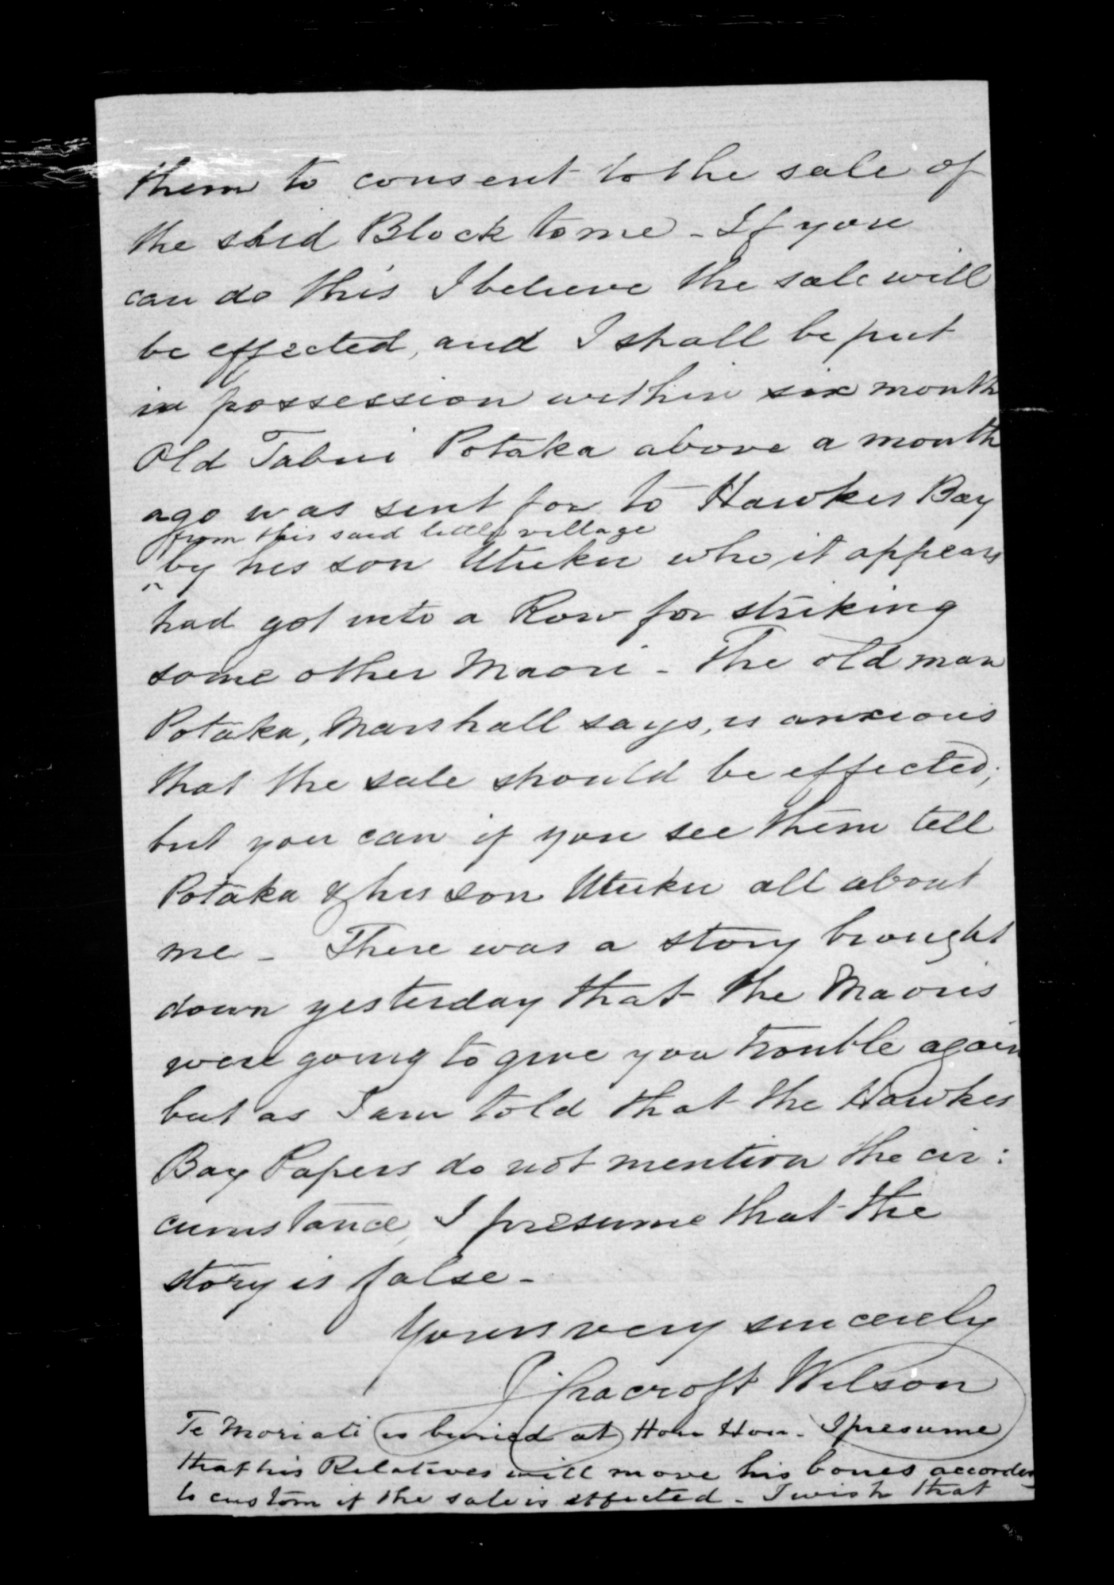 them to consent to the sale of
the said Block to me - If you
can do this I believe the sale will
be effected, and I shall be put
in possession within six month
Old Tabui Potaka above a month
ago was sent for to Hawkes Bay
from this said little village
by his son Utuku who, it appears
had got into a Row for striking
some other Maori - The old man
Potaka, Marshall says, is anxious
that the sale should be effected;
but you can if you see them tell
Potaka & his son Utuku all about
me - There was a story brought
down yesterday that the Maoris
were going to give you trouble again
but as I am told that the Hawkes
Bay Papers do not mention the cir:
cumstance, I presume that the
story is false -
Yours very sincerely
J Cracroft Wilson
Te Moriati is buried at Hou Hou - I presume
that his Relatives will move his bones accordin
to custom if the sale is effected - I wish that